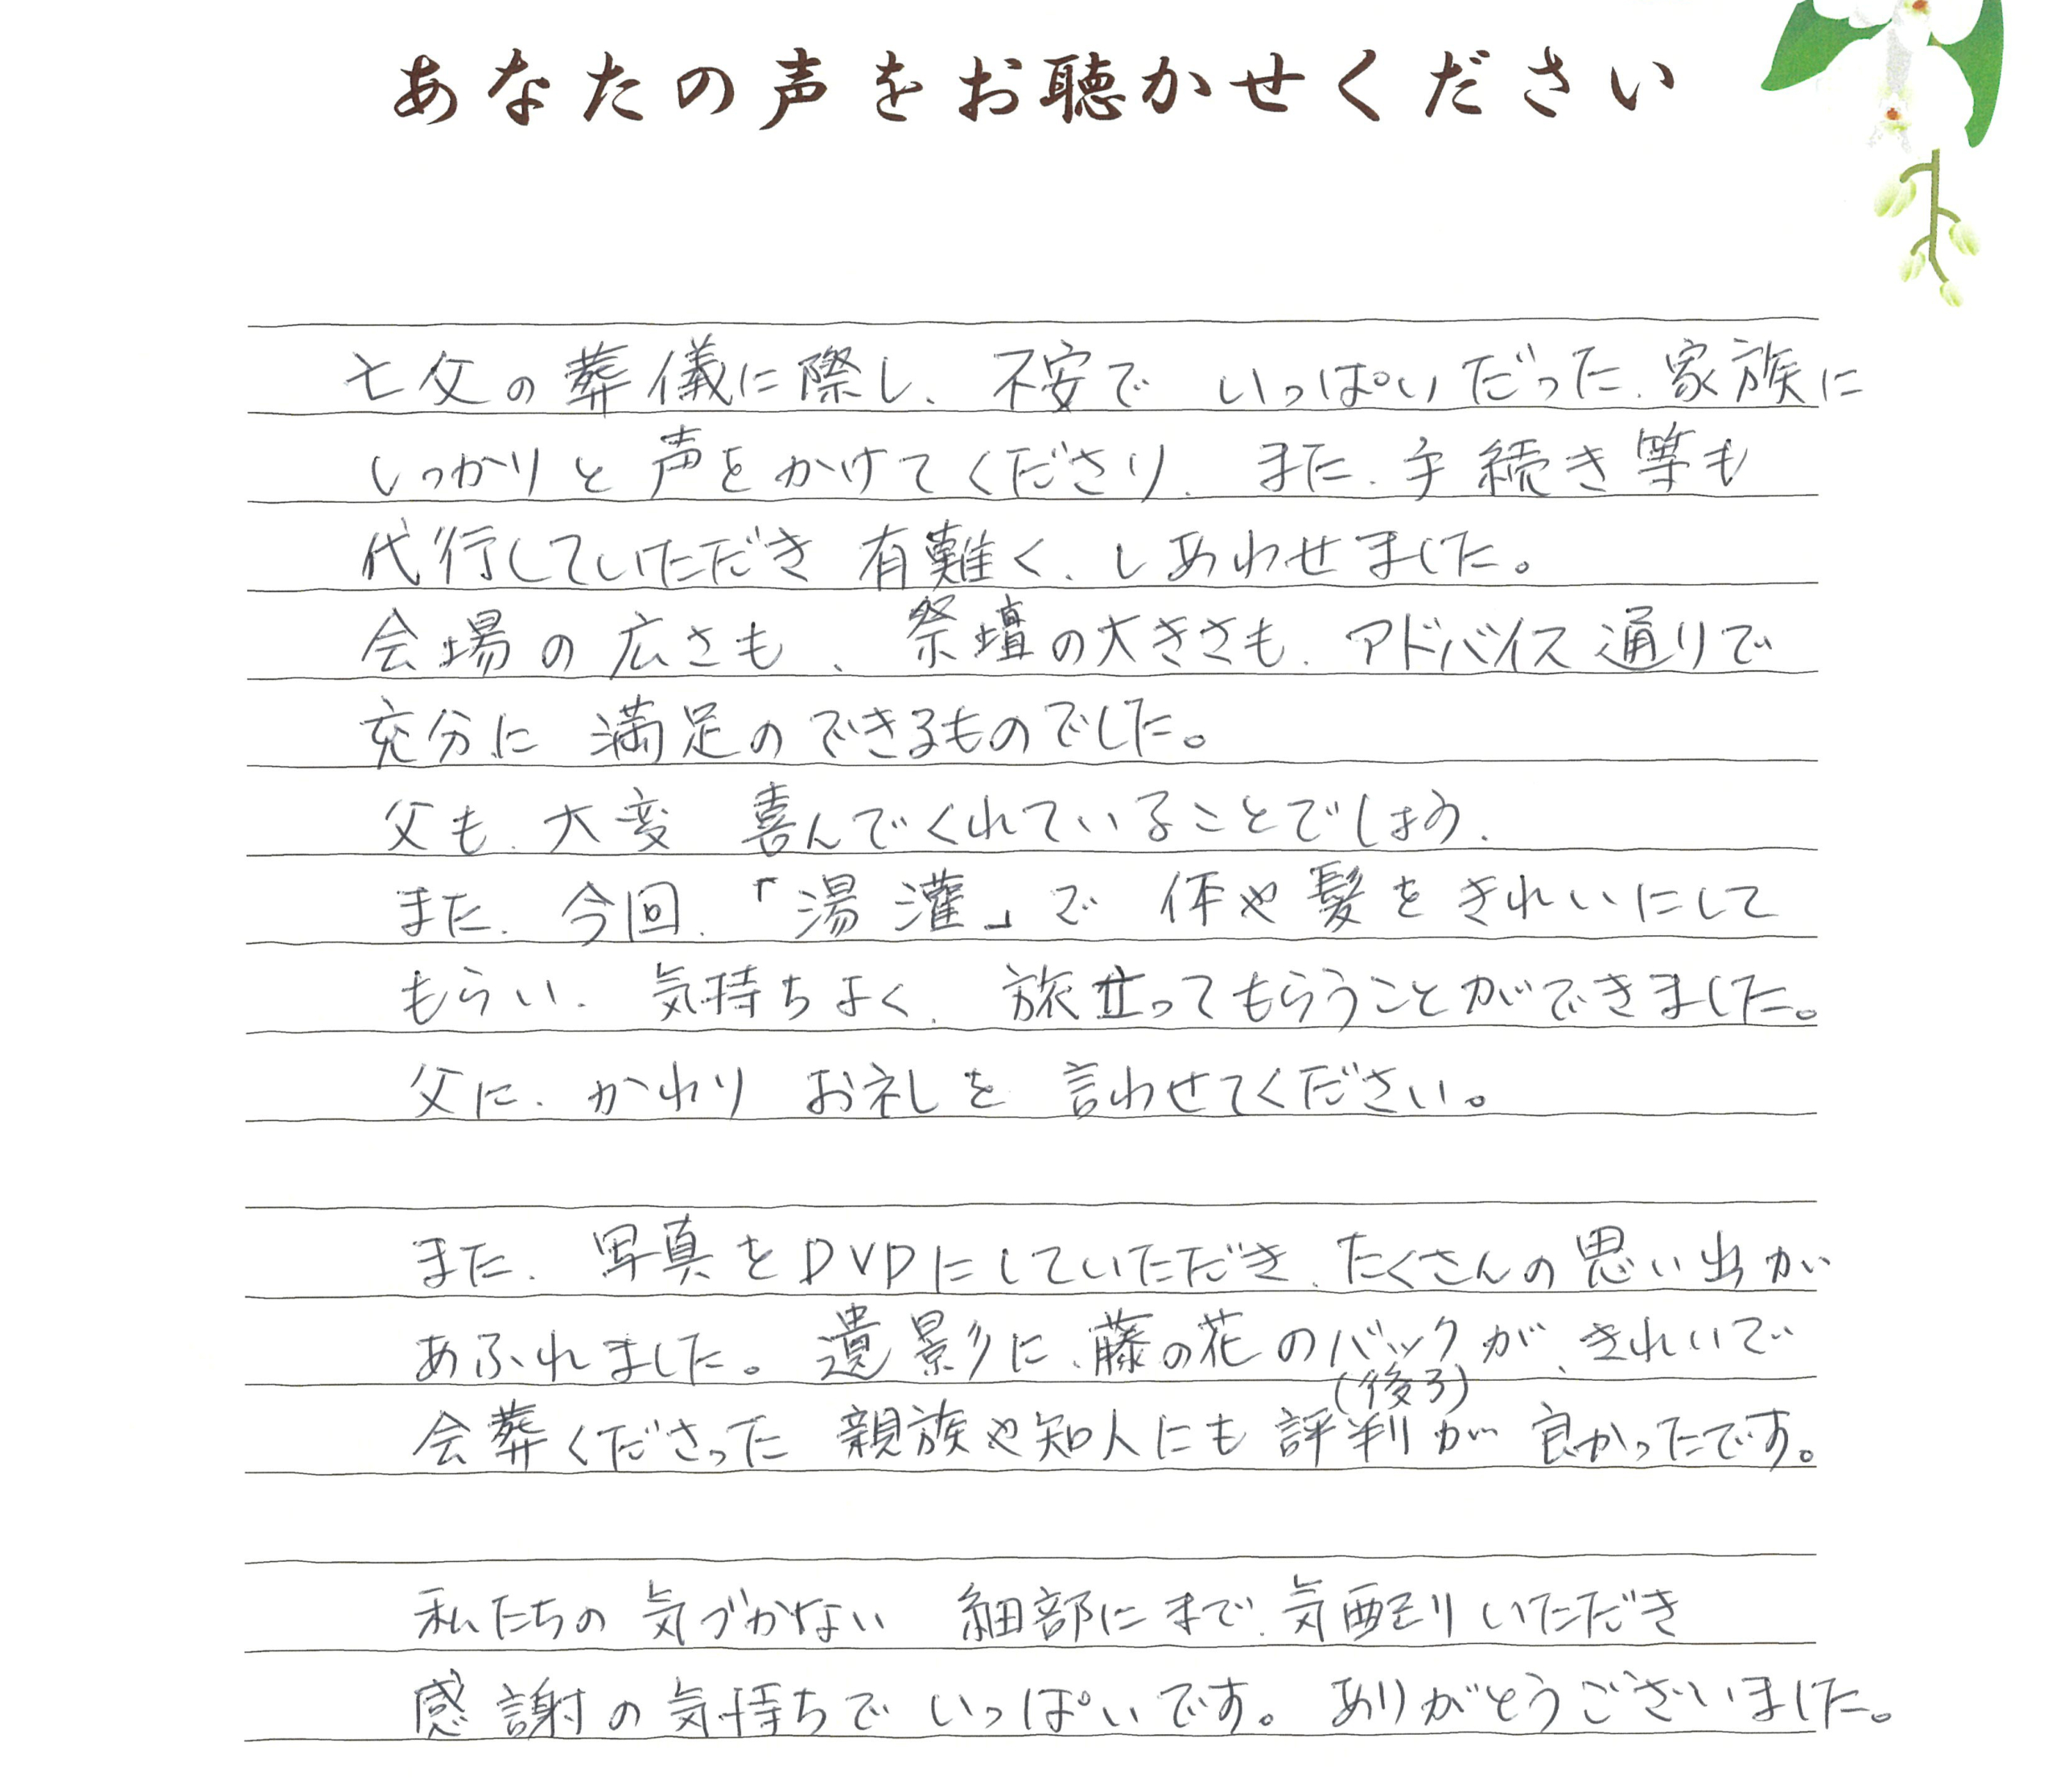 あなたの声をお聴かせください
亡父の葬儀に際し、不安で いっぱいだった、家族に
しっかりと声をかけてくださり、また、手続き等も
代行していただき 有難く、しあわせました。
会場の広さも、祭壇の大きさも、アドバイス通りで
充分に 満足のできるものでした。
父も、大変 喜んでくれていることでしょう、
また、今回、「湯灌」で 体や髪をきれいにして
もらい、気持ちよく、旅立ってもらうことができました。
父に、かわり お礼を 言わせてください。
また、写真をDVDにしていただき、たくさんの思い出が
あふれました。遺影に、藤の花のバックが、きれいで
(後ろ)
会葬くださった 親族や知人にも 評判が 良かったです。
私たちの 気づかない 細部にまで、気配りいただき
感謝の気持ちで いっぱいです。ありがとうございました。